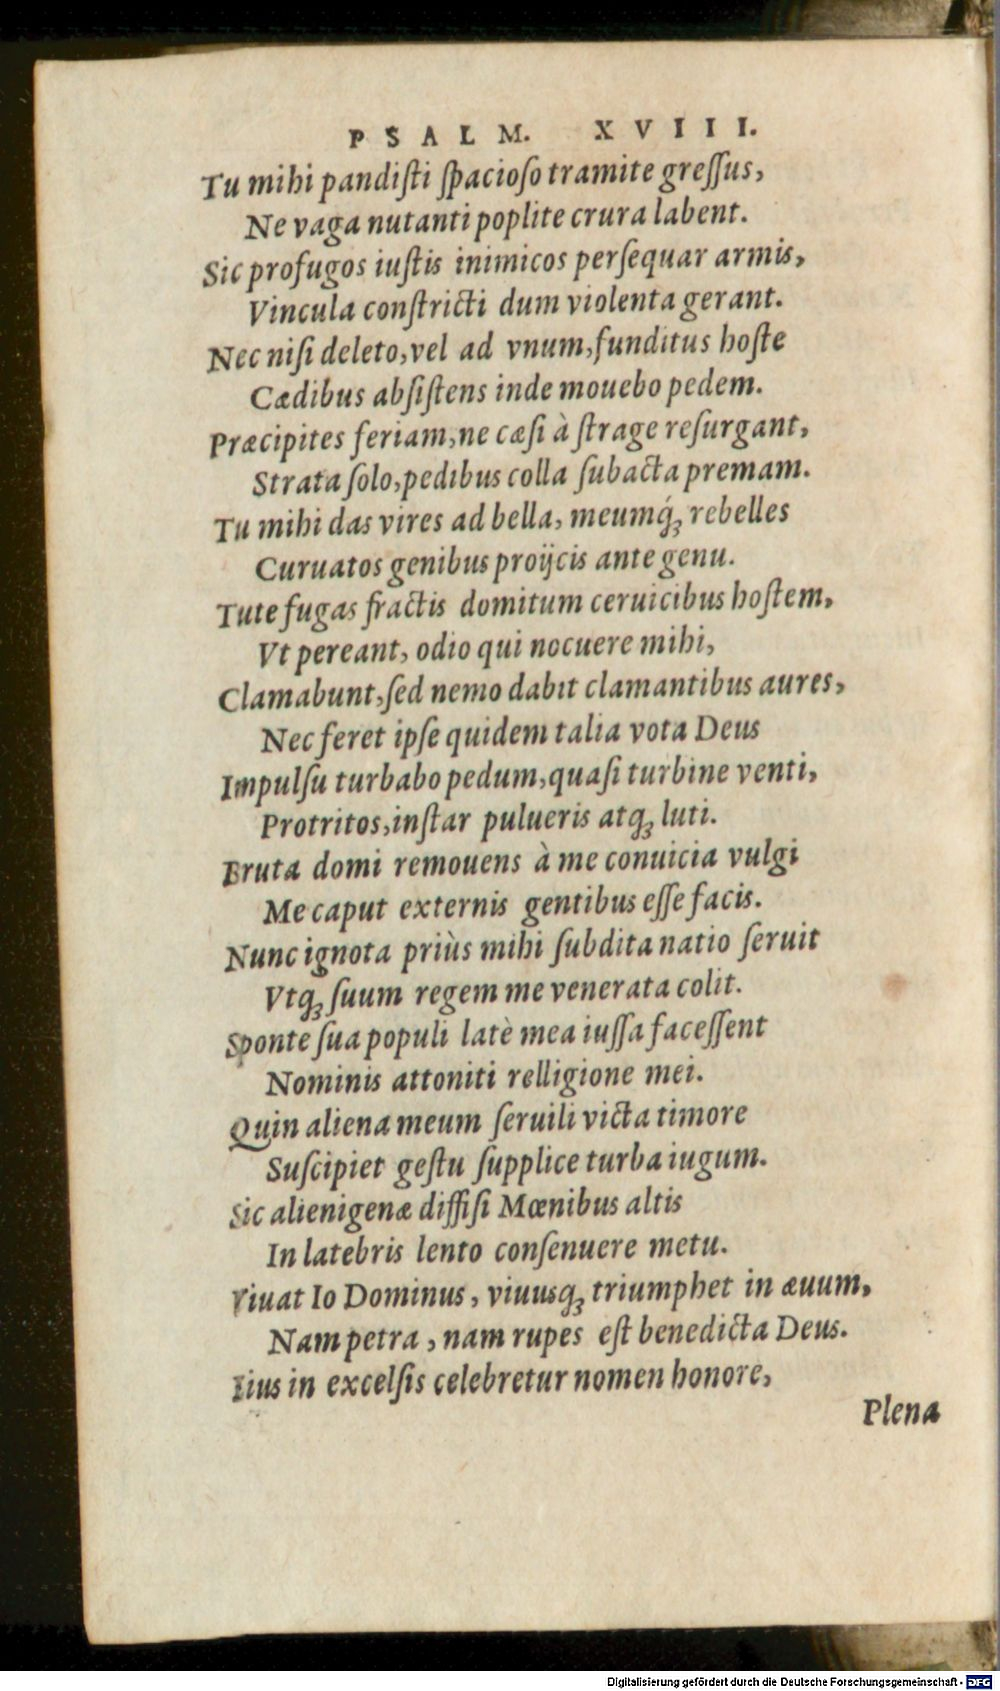 PSALM. XVIII.
Tu mihi pandiſti ſpacioſo tramite greſſus,
Ne vaga nutanti poplite crura labent.
Sic profugos iuſtis inimicos perſequar armis,
Vincula conſtricti dum violenta gerant.
Nec niſi deleto, vel ad vnum, funditus hoſte
Cædibus abſiſtens inde mouebo pedem.
Præcipites feriam, ne cæſi à ſtrage reſurgant,
Strata ſolo, pedibus colla ſubacta premam.
Tu mihi das vires ad bella, meumq́ꝫ rebelles
Curuatos genibus proijcis ante genu.
Tute fugas fractis domitum ceruicibus hoſtem,
Vt pereant, odio qui nocuere mihi,
Clamabunt, ſed nemo dabit clamantibus aures,
Nec feret ipſe quidem talia vota Deus
Impulſu turbabo pedum, quaſi turbine venti,
Protritos, inſtar pulueris atqꝫ luti.
Bruta domi remouens à me conuicia vulgi
Me caput externis gentibus eſſe facis.
Nunc ignota priùs mihi ſubdita natio ſeruit
Vtqꝫ ſuum regem me venerata colit.
Sponte ſua populi latè mea iuſſa faceſſent
Nominis attoniti relligione mei.
Quin aliena meum ſeruili victa timore
Suſcipiet geſtu ſupplice turba iugum.
Sic alienigenæ diffiſi Mœnibus altis
In latebris lento conſenuere metu.
Viuat Io Dominus, viuusqꝫ triumphet in æuum,
Nam petra, nam rupes eſt benedicta Deus.
Eius in excelſis celebretur nomen honore,
Plena
Digitalisierung gefördert durch die Deutsche Forschungsgemeinschaft - DFG